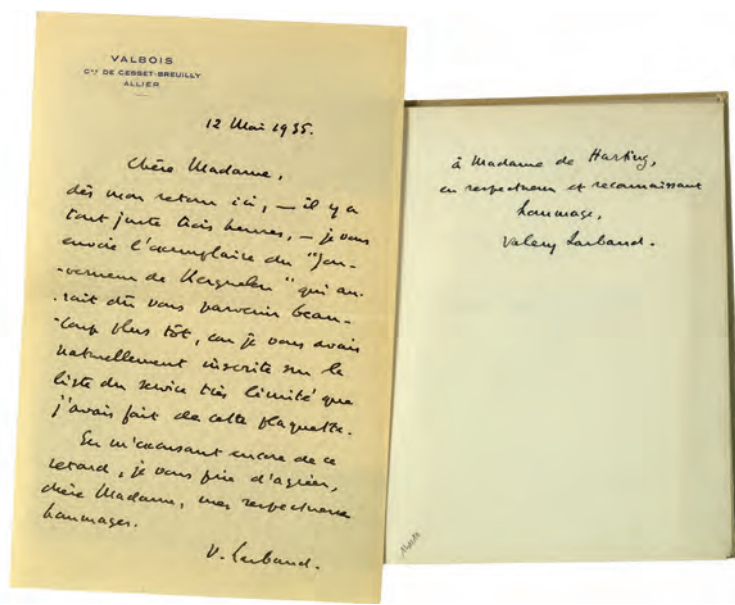 VALBOIS
Cne DE CESSET-BREUILLY
ALLIER
12 Mai 1935.
Chère Madame,
dès mon retour ici, — il y a
tout juste trois heures, — je vous
envoie l'exemplaire du "Gou-
-verneur de Kerguelen" qui au-
-rait dû vous parvenir beau-
-coup plus tôt, car je vous avais
naturellement inscrite sur la
liste du service très limité que
j'avais fait de cette plaquette.
En m'excusant encore de ce
retard, je vous prie d'agréer,
chère Madame, mes respectueux
hommages.
V. Larbaud.
à Madame de Harting,
en respectueux et reconnaissant
hommage,
Valery Larbaud.